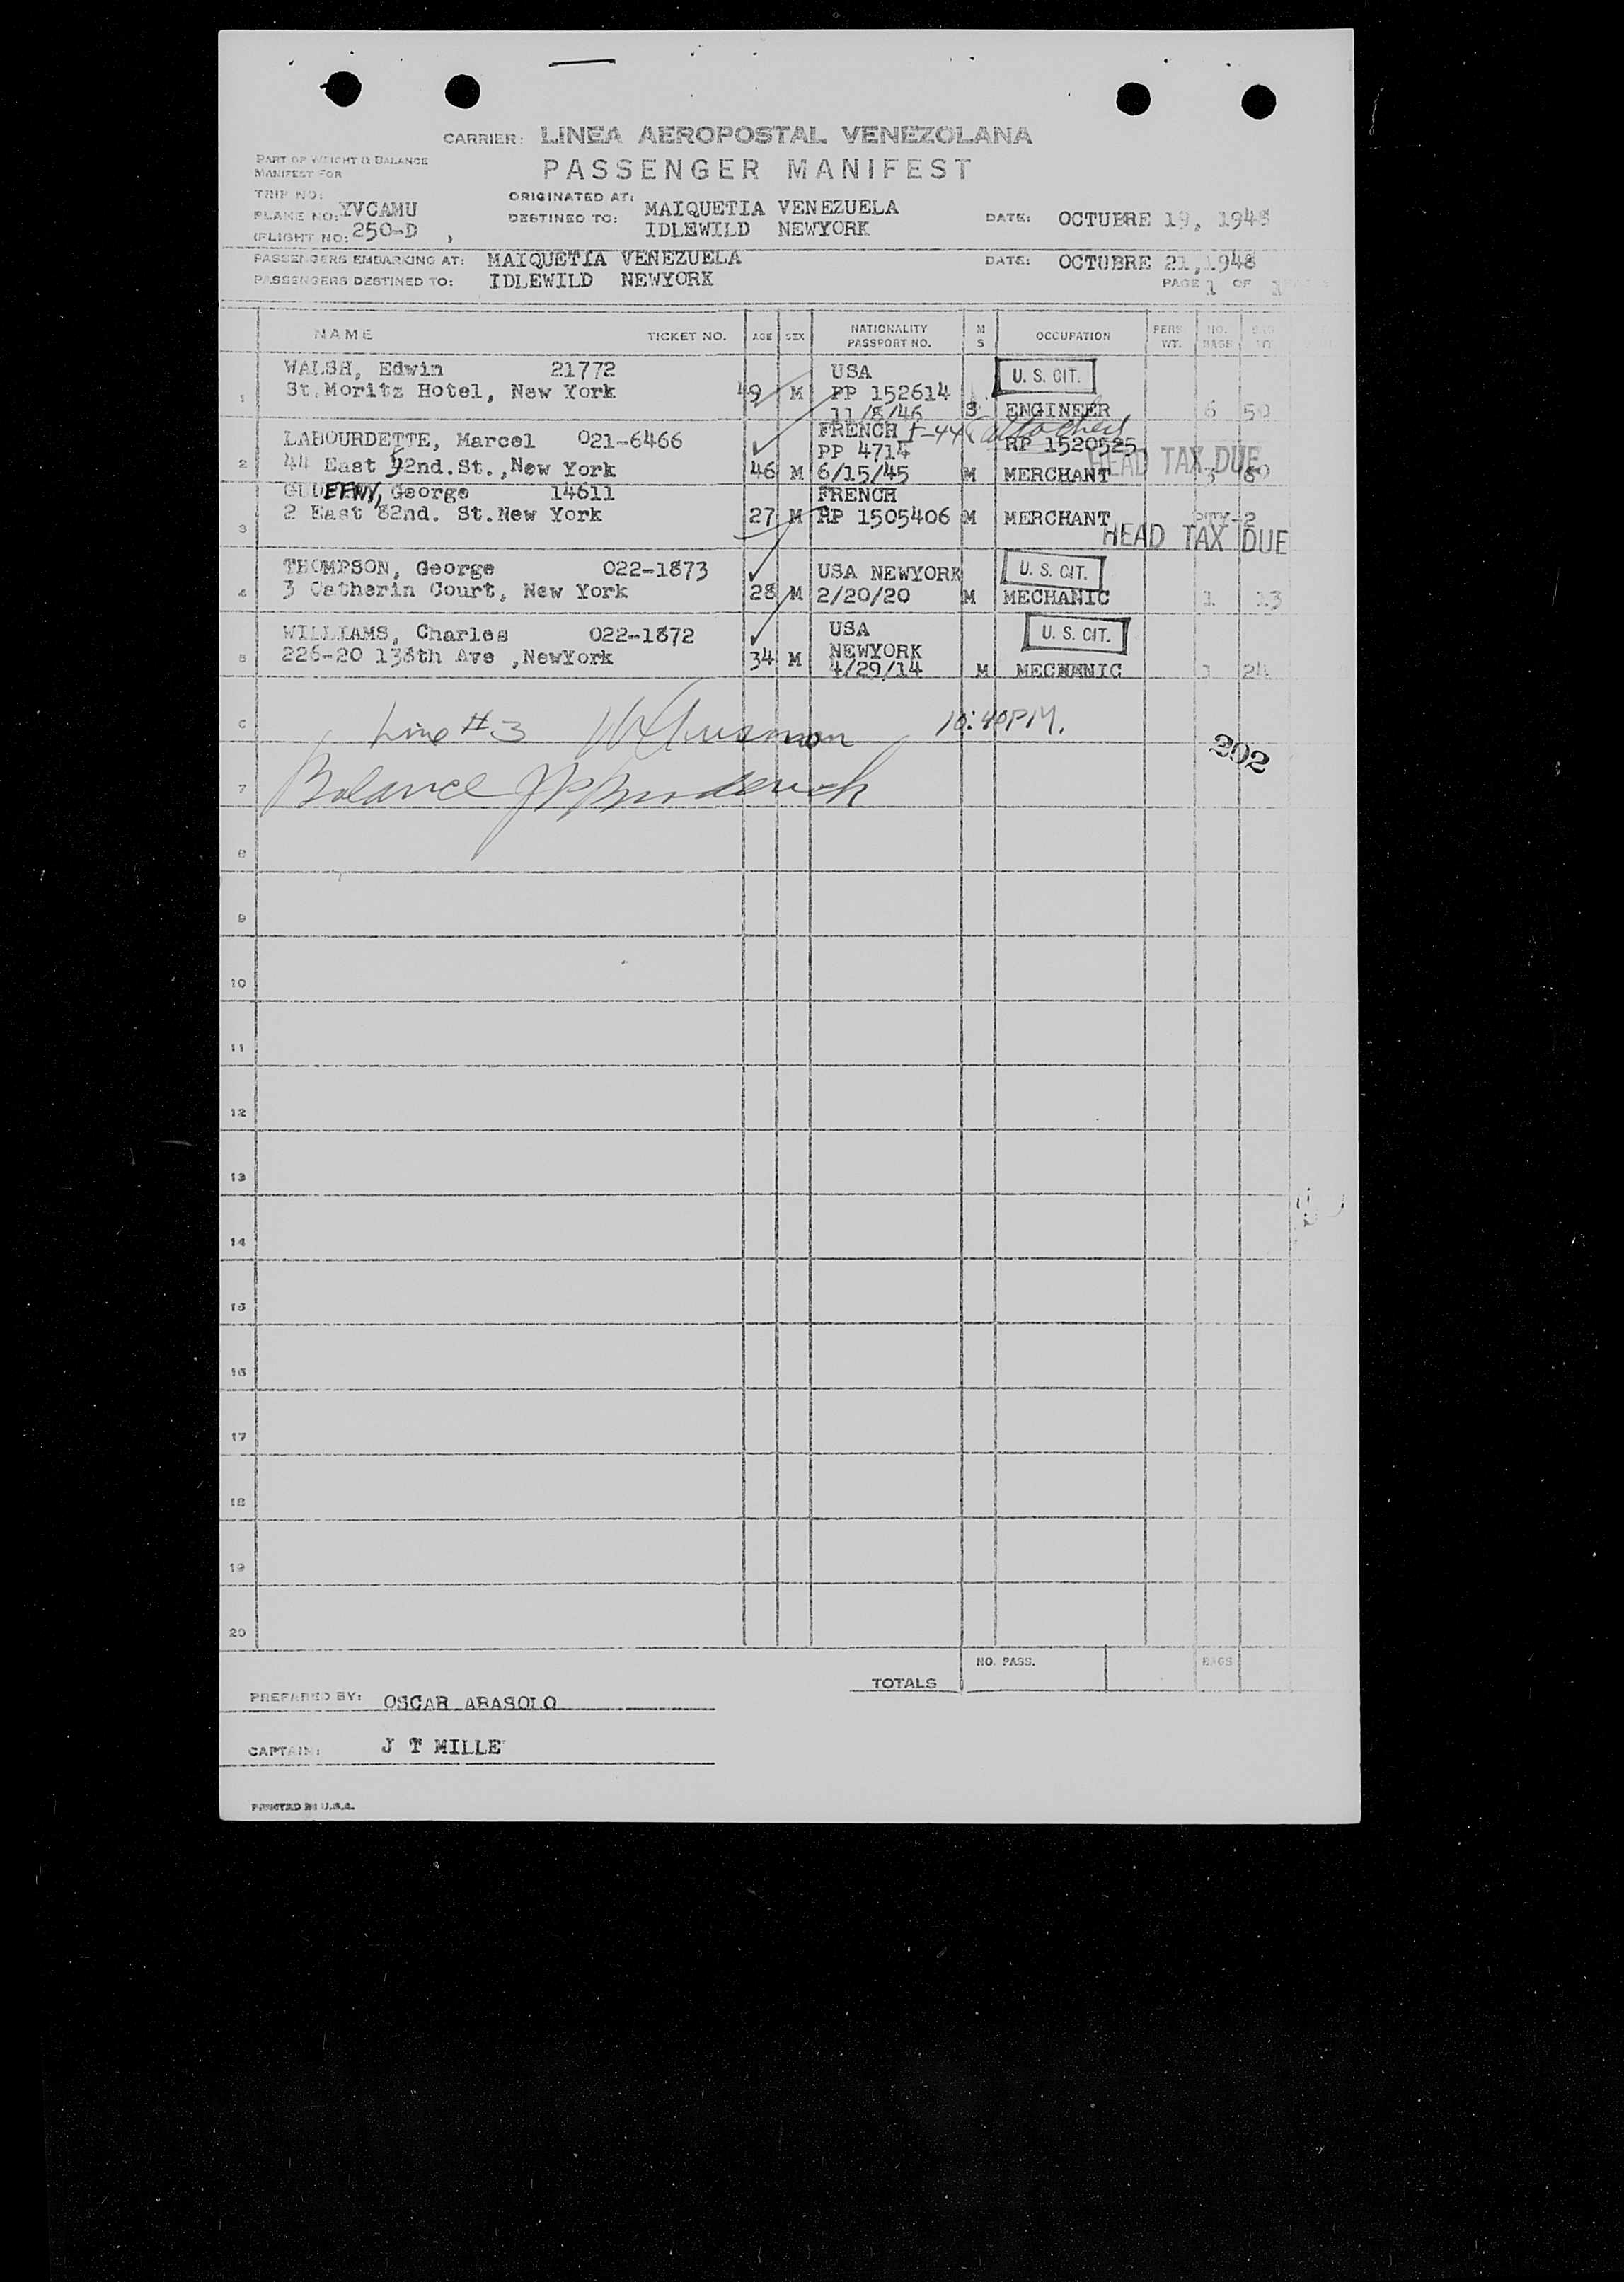 CARRIER: LINEA AEROPOSTAL VENEZOLANA
PART OF WEIGHT & BALANCE
MANIFEST FOR
PASSENGER MANIFEST
TRIP NO:
PLANE NO: YVCAMU
(FLIGHT NO: 250-D )
ORIGINATED AT: MAIQUETIA VENEZUELA
DESTINED TO: IDLEWILD NEWYORK
DATE: OCTUBRE 19, 1948
PASSENGERS EMBARKING AT: MAIQUETIA VENEZUELA
DATE: OCTUBRE 21,1948
PASSENGERS DESTINED TO: IDLEWILD NEWYORK
PAGE 1 OF 1
NAME TICKET NO. AGE SEX NATIONALITY PASSPORT NO. M S OCCUPATION PERS. WT. NO. BAGS
WALSH, Edwin 21772 USA U. S. CIT.
1 St.Moritz Hotel, New York 49 M PP 152614
11/8/46 S ENGINEER 6 50
LABOURDETTE, Marcel 021-6466 FRENCH I-44 attached
PP 4714 RP 1520525
2 44 East 52nd.St.,New York 46 M 6/15/45 M MERCHANT HEAD TAX DUE
George 14611 FRENCH
3 2 East 82nd. St.New York 27 M RP 1505406 M MERCHANT
HEAD TAX DUE
THOMPSON, George 022-1873 USA NEWYORK U. S. CIT.
4 3 Catherin Court, New York 28 M 2/20/20 M MECHANIC 1 13
WILLIAMS, Charles 022-1872 USA U. S. CIT.
5 226-20 138th Ave ,NewYork 34 M NEWYORK
4/29/14 M MECHANIC 1 24
6 Line #3 10:40PM.
202
7 Balance
8
9
10
11
12
13
14
15
16
17
18
19
20
TOTALS NO. PASS. BAGS
PREPARED BY: OSCAR ABASOLO
CAPTAIN: J T MILLE
PRINTED IN U.S.A.